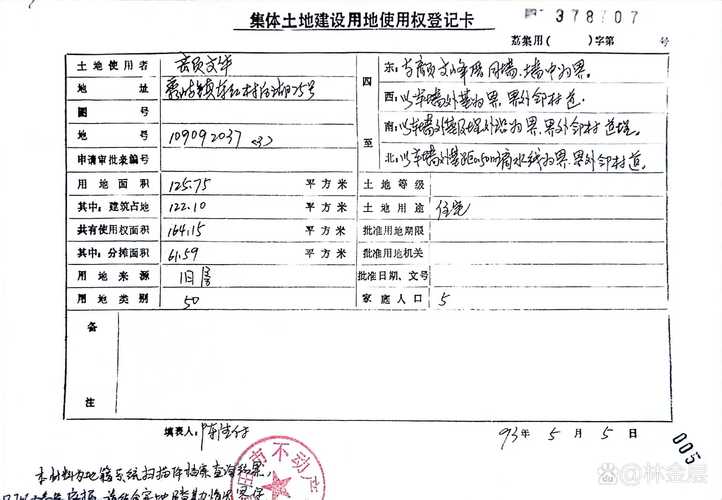 378107
集体土地建设用地使用权登记卡
荔集用( )字第 号
土地使用者 高页文华
地址 村 25号
图号
地号 109092037 (3)
申请审批表编号
用地面积 125.75 平方米
其中:建筑占地 122.10 平方米
共有使用权面积 164.15 平方米
其中:分摊面积 61.59 平方米
用地来源 旧房
用地类别 50
四至
东:与 文 共用墙、墙中为界。
西:以本墙外基为界,界外邻村道。
南:以本墙外基及埕外沿为界,界外邻村道埕。
北:以本墙外基距0.50m滴水线为界,界外邻村道。
土地等级
土地用途 住宅
批准用地期限
批准用地机关
批准日期、文号
家庭人口 5
备注
填表人: 陈
93年 5月 5日
005
市不动产
本材料为地籍系统扫描件档案查询结果,
@林金层